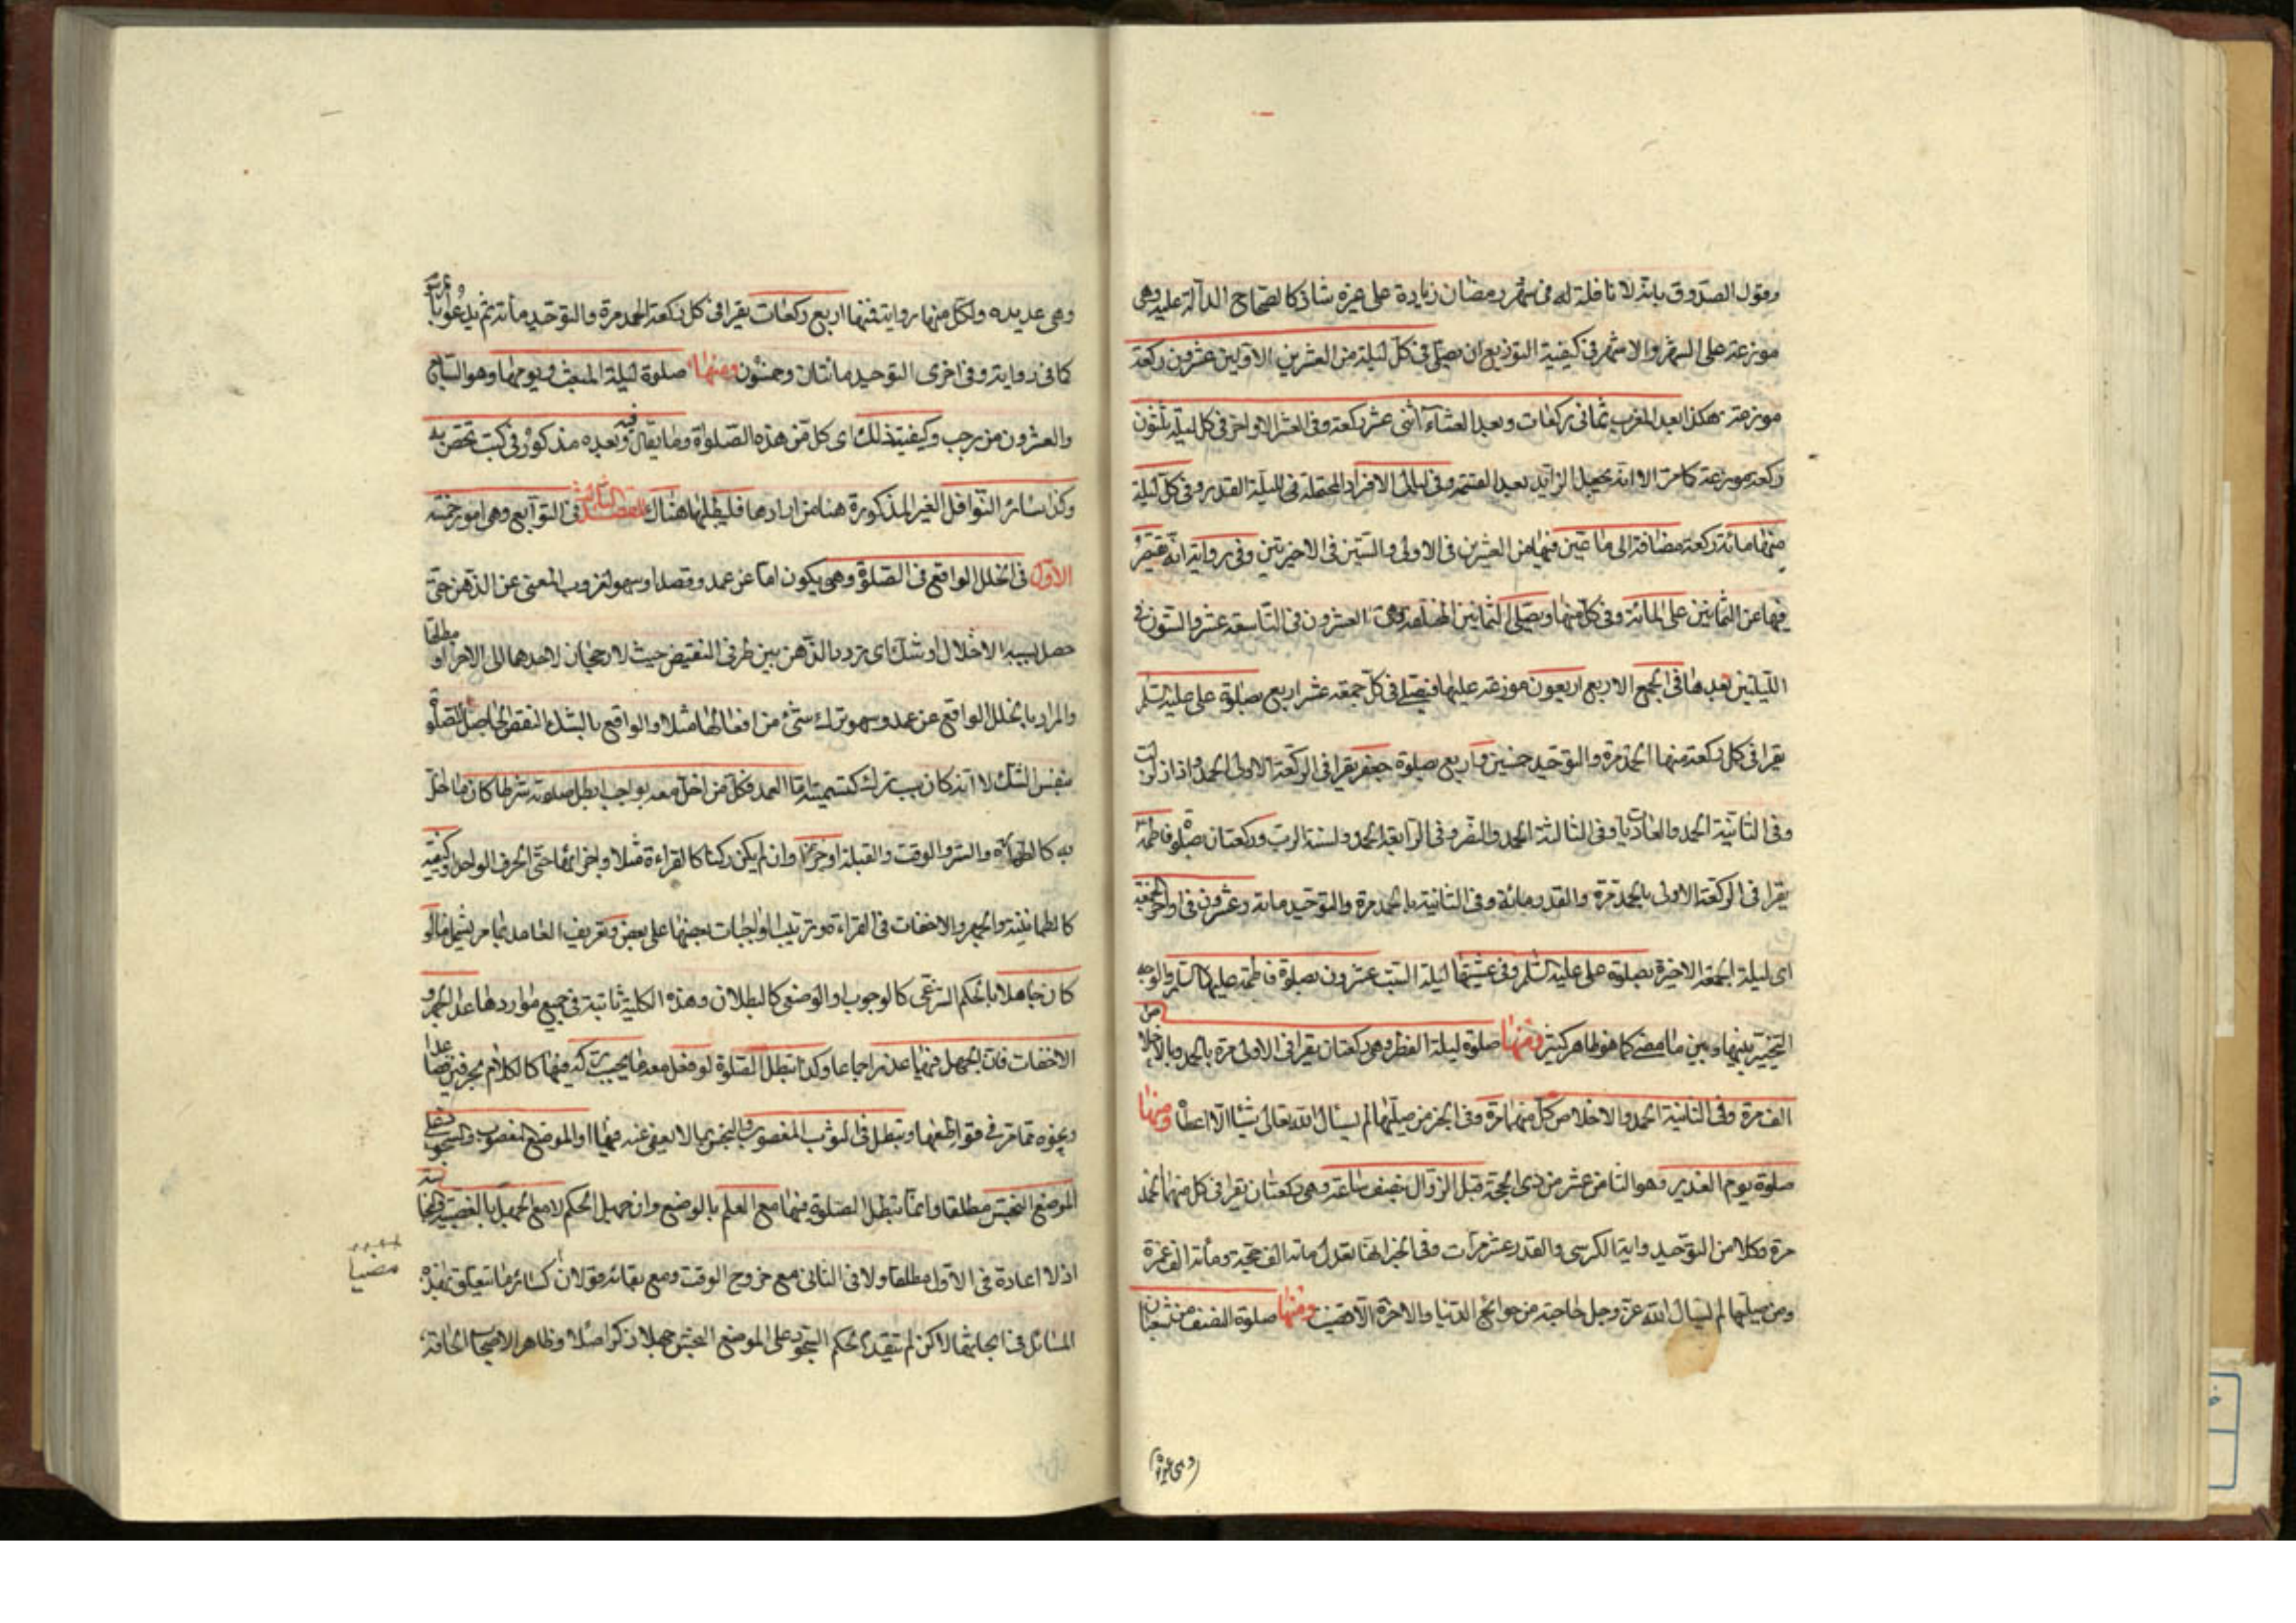 وقول الصدوق بانه لا نافلة له فى شهر رمضان زيادة على غيره شاذ كالصحاح الدالة عليه وهى
موزعة على الشهر والاشهر فى كيفية التوزيع ان يصلى فى كل ليلة من العشرين الاولين عشرون ركعة
موزعة هكذا بعد المغرب ثمانى ركعات وبعد العشاء اثنى عشر ركعة وفى العشر الاواخر فى كل ليلة ثلثون
ركعة موزعة كما مر الا انه يجعل الزائد بعد العتمة وفى ليالى الافراد المحتملة فى الليلة القدر وفى كل ليلة
منها مائة ركعة مضافة الى ما عين فيها من العشرين فى الاولى والستين فى الاخيرتين وفى رواية انه يقتصر
فيها عن الثمانين على المائة وفى كل منها ويصلى الثمانين المخلفة وهى العشرون فى التاسعة عشر والستون فى
الليلتين بعدها فى الجمع الاربع اربعون موزعة عليها فيصلى فى كل جمعة عشر اربع بصلوة على عليه السلم
يقرا فى كل ركعة منها الحمد مرة والتوحيد خمسين واربع بصلوة جعفر يقرا فى الركعة الاولى الحمد واذا زلزلت
وفى الثانية الحمد والعاديات وفى الثالثة الحمد والنصر وفى الرابعة الحمد و لسنة الرب وركعتان بصلوة فاطمة
يقرا فى الركعة الاولى بالحمد مرة والقدر مائة وفى الثانية بالحمد مرة والتوحيد مائة وعشرون فى اواخر جمعة
اى ليلة الجمعة الاخيرة بصلوة على عليه السلم وفى عشيتها ليلة السبت عشرون بصلوة فاطمة عليها السلم والوجه
التخيير بينها وبين ما مضى كما هو ظاهر كثير ومنها صلوة ليلة الفطر وهى ركعتان يقرا فى الاولى مرة بالحمد وبالاخلاص
الف مرة وفى الثانية الحمد والاخلاص كل منهما مرة وفى الخبر من صليهما لم يسأل الله تعالى شيئا الا اعطاه ومنها
صلوة يوم الغدير وهو الثامن عشر من ذى الحجة قبل الزوال بنصف ساعة وهى ركعتان يقرا فى كل منهما الحمد
مرة وكلا من التوحيد واية الكرسى والقدر عشر مرات وفى الخبر انها تعدل مائة الف حجة ومائة الف عمرة
ومن صليهما لم يسأل الله عز وجل حاجة من حوائج الدنيا والاخرة الا قضيت ومنها صلوة النصف من شعبان
وهى عديدة
وهى عديده ولكل منها رواية فمنها اربع ركعات يقرا فى كل ركعة الحمد مرة والتوحيد مائة ثم يدعو
كما فى رواية وفى اخرى التوحيد مائتان وخمسون ومنها صلوة ليلة المبعث ويومها وهو السابع
والعشرون من رجب وكيفية ذلك اى كل من هذه الصلوة وما يقال فيه وبعده مذكور فى كتب تختص به
وكذا سائر النوافل الغير المذكورة هنا من ارادها فليطلبها هناك المقصد الثالث فى التوابع وهى امور خمسة
الاول فى الخلل الواقع فى الصلوة وهو يكون اما عن عمد وقصد او سهو لعزوب المعنى عن الذهن حتى
حصل بسببه الاخلال او شك اى تردد الذهن بين طرفى النقيض حيث لا رجحان لاحدهما الى الاخر مطلقا
والمراد بالخلل الواقع عن عمد وسهو ترك شئ من افعالها مثلا والواقع بالشك النقص الحاصل للصلوة
بنفس الشك لا انه كان سبب ترك كقسيمه اما العمد فكل من اخل معه بواجب ابطل صلوته شرطا كان ما اخل
به كالطهارة والستر والوقت والقبلة او جزءا وان لم يكن ركنا كالقراءة مثلا واجزائها حتى الحرف الواحد او كيفية
كالطمانينة والجهر والاخفات فى القراءة وترتيب الواجبات بعضها على بعض وتعريف العامد بما مر يشمل ما لو
كان جاهلا بالحكم الشرعى كالوجوب او الوضعى كالبطلان وهذه الكلية ثابتة فى جميع مواردها عدا الجهر و
الاخفات فان الجهل فيهما عذر اجماعا وكذا تبطل الصلوة لو فعل معه ما يجب تركه فيها كالكلام بحرفين فصاعدا
ونحوه مما مر فى قواطعها وتبطل فى الثوب المغصوب والنجس بما لا يعفى عنه فيها والموضع المغصوب والسجود
الموضع النجس مطلقا وانما تبطل الصلوة فيها مع العلم بالوضع وان جهل الحكم لا مع الجهل بالغصبية والنجاسة
اذ لا اعادة فى الاول مطلقا ولا فى الثانى مع خروج الوقت ومع بقائه قولان كسائر ما يتعلق بهذه
المسائل فى النجاسة لاكن لم نتقيد بحكم السجود على الموضع النجس جهلا ذكرا اصلا وظاهر الاصحاب الحاقه